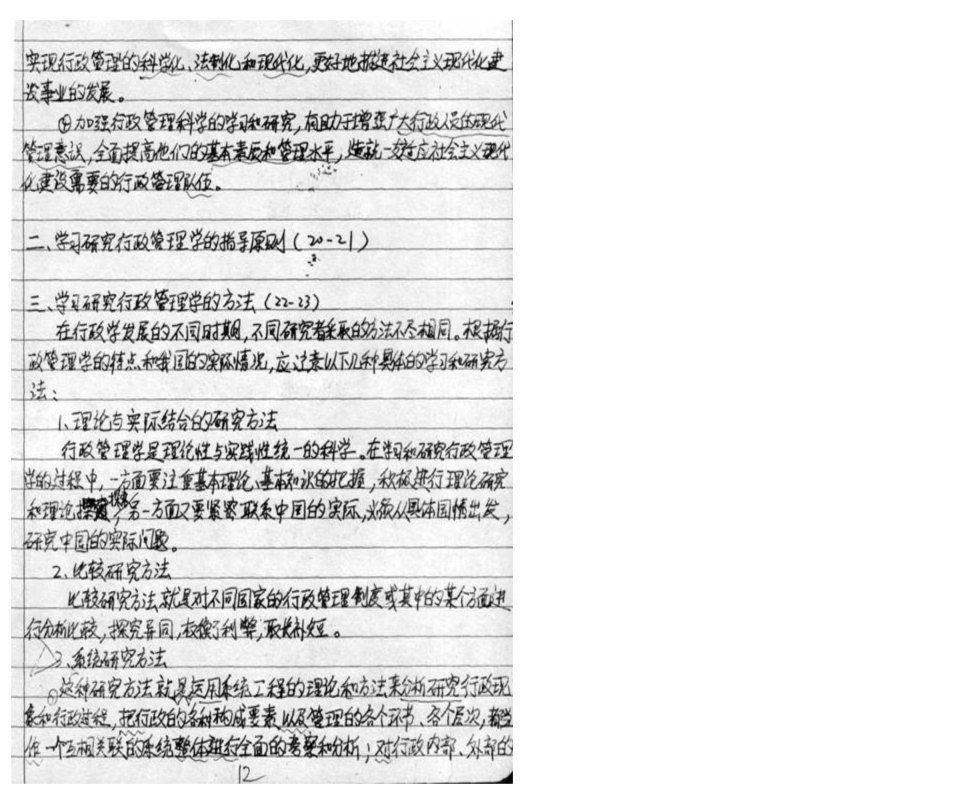 实现行政管理的科学化、法制化和现代化,更好地推进社会主义现代化建
设事业的发展。
④加强行政管理科学的学习和研究,有助于增强广大行政人员的现代
管理意识,全面提高他们的基本素质和管理水平,造就一支适应社会主义现代
化建设需要的行政管理队伍。
二、学习研究行政管理学的指导原则(20-21)
三、学习研究行政管理学的方法(22-23)
在行政学发展的不同时期,不同研究者采取的方法不尽相同。根据行
政管理学的特点和我国的实际情况,应注意以下几种具体的学习和研究方
法:
1、理论与实际结合的研究方法
行政管理学是理论性与实践性统一的科学。在学习和研究行政管理
学的过程中,一方面要注重基本理论、基本知识的把握,积极进行理论研究
和理论探索,另一方面又要紧密联系中国的实际,必须从具体国情出发,
研究中国的实际问题。
2、比较研究方法
比较研究方法就是对不同国家的行政管理制度或其中的某个方面进
行分析比较,探究异同,权衡利弊,取长补短。
3、系统研究方法
①这种研究方法就是运用系统工程的理论和方法来分析研究行政现
象和行政过程,把行政的各种构成要素以及管理的各个环节、各个层次,都当
作一个互相关联的系统整体进行全面的考察和分析;对行政内部、外部的
12